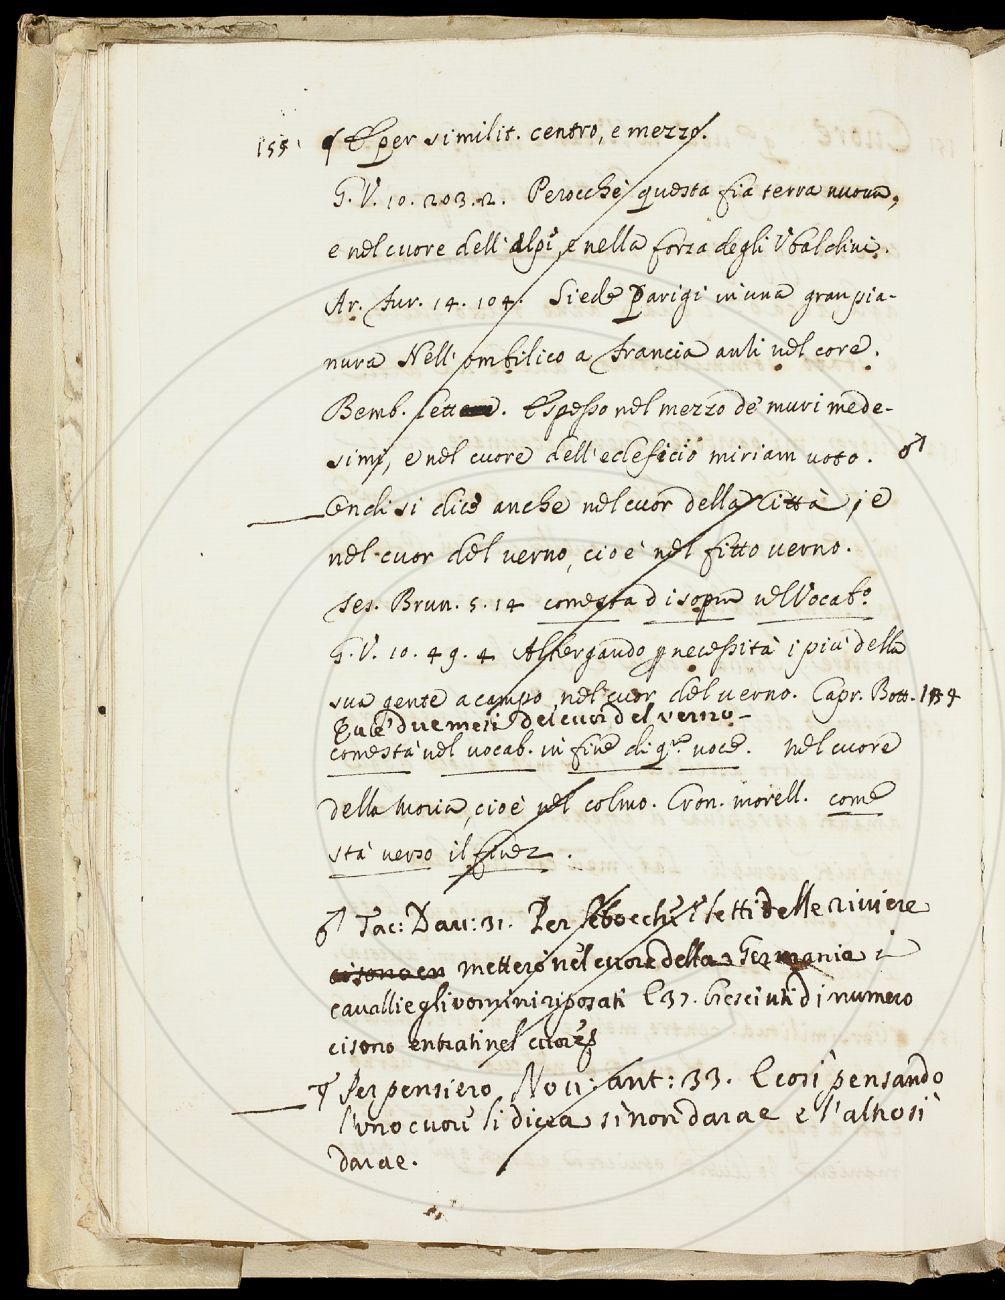 155 ¶ E per similit. centro, e mezzo.
G. V. 10. 203. 2. Perocchè questa fia terra nuova,
e nel cuore dell'alpi, e nella forza degli Vbaldini.
Ar. fur. 14. 104. Siede Parigi in una gran pia-
nura Nell'ombilico a francia anzi nel core.
Bemb. lett. E spesso nel mezzo de' muri mede-
simi, e nel cuore dell'edeficio miriam voto. ♂
Ondi si dice anche nel cuor della Città, e
nel cuor del verno, cioè nel fitto verno.
Tes. Brun. 5. 14 come sta di sopra nel Vocab.o
G. V. 10. 49. 4 Albergando p necessità i più della
sua gente a campo, nel cuor del verno. Capr. Bott. 154
due mesi del cuor del verno
come sta nel vocab. in fine di q.a voce. nel cuore
della moria, cioè nel colmo. Cron. morell. come
sta verso il fine.
♂ Tac: Dav: 31. Per le bocche e letti delle riviere
mettersi nel cuore della Germania i
cavalli e gli vomini riposati E 37. Cresciuti di numero
ci sono entrati nel cuore
Per pensiero Nov: ant: 33. E così pensando
l'uno cuore li dicea sì non darae e l'altro sì
darae.